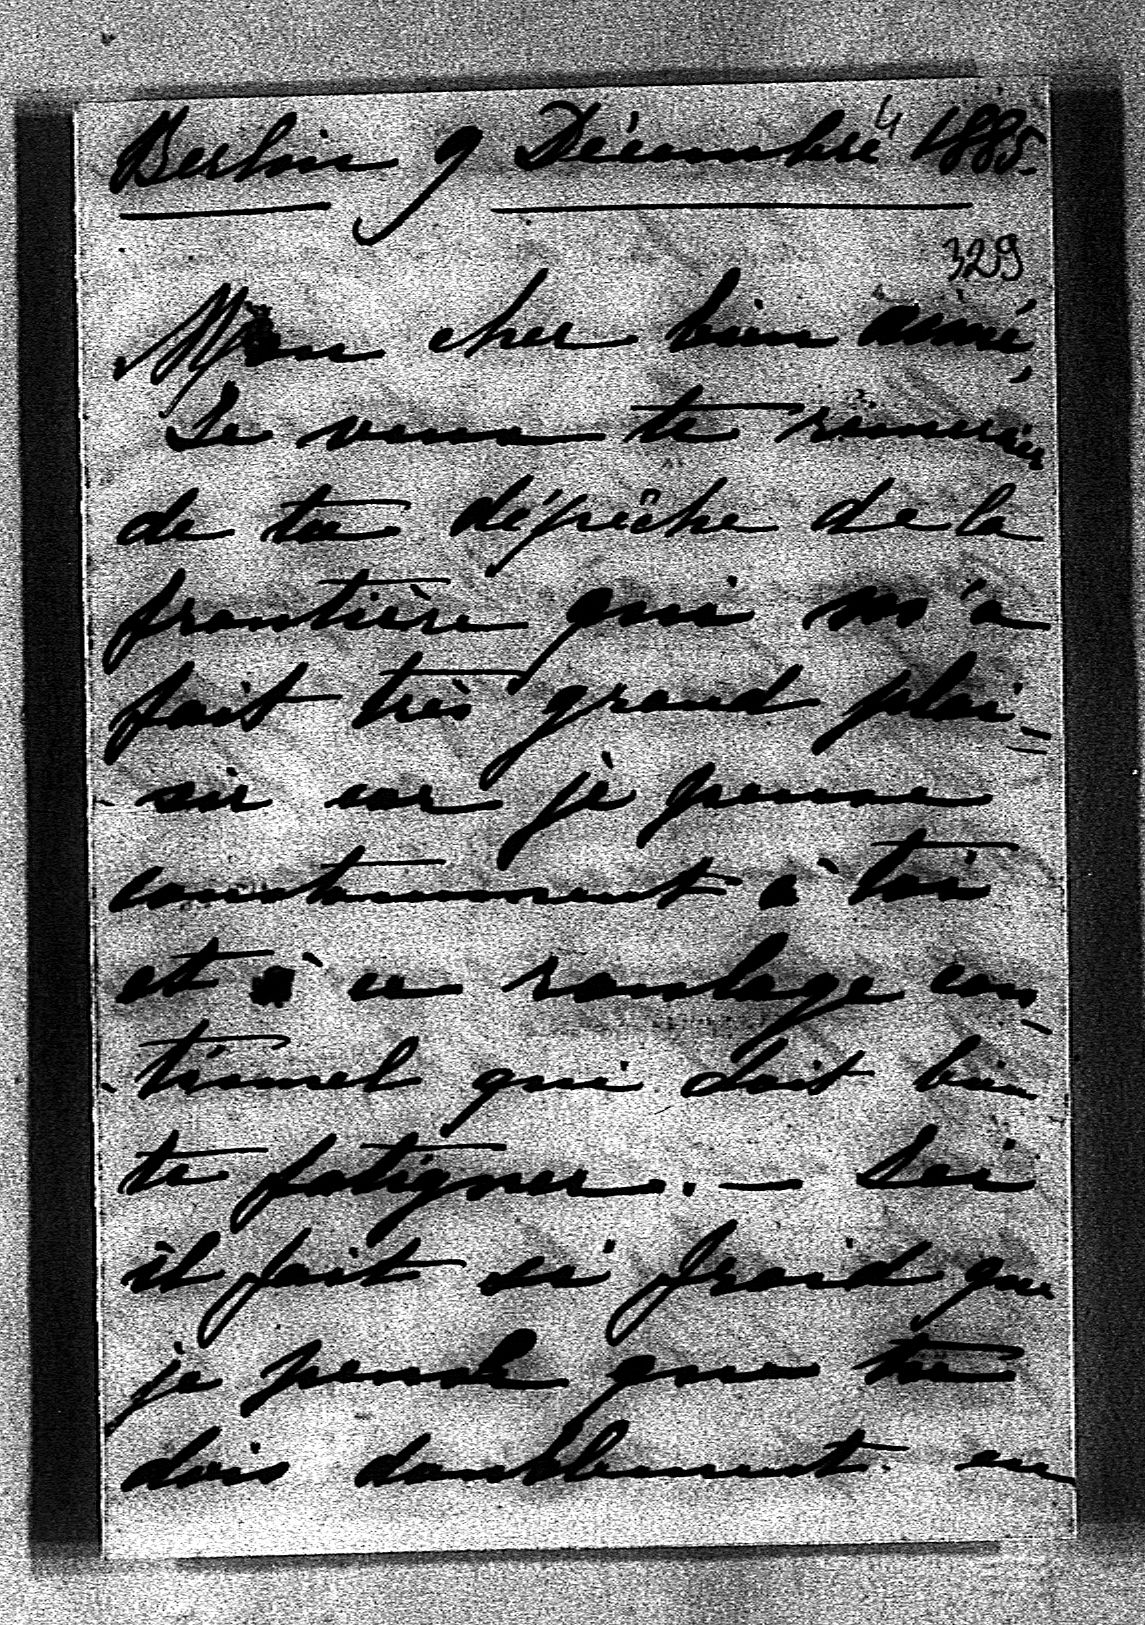 Berlin 9 Décembre 4 1885.
329
Mon cher bien aimé,
Je veux te remercier
de ta dépêche de la
frontière qui m'a
fait très grand plai-
sir car je pense
constamment à toi
et à ce roulage con-
tinuel qui doit bien
te fatiguer. — Ici
il fait si froid que
je pense que tu
dois doublement en